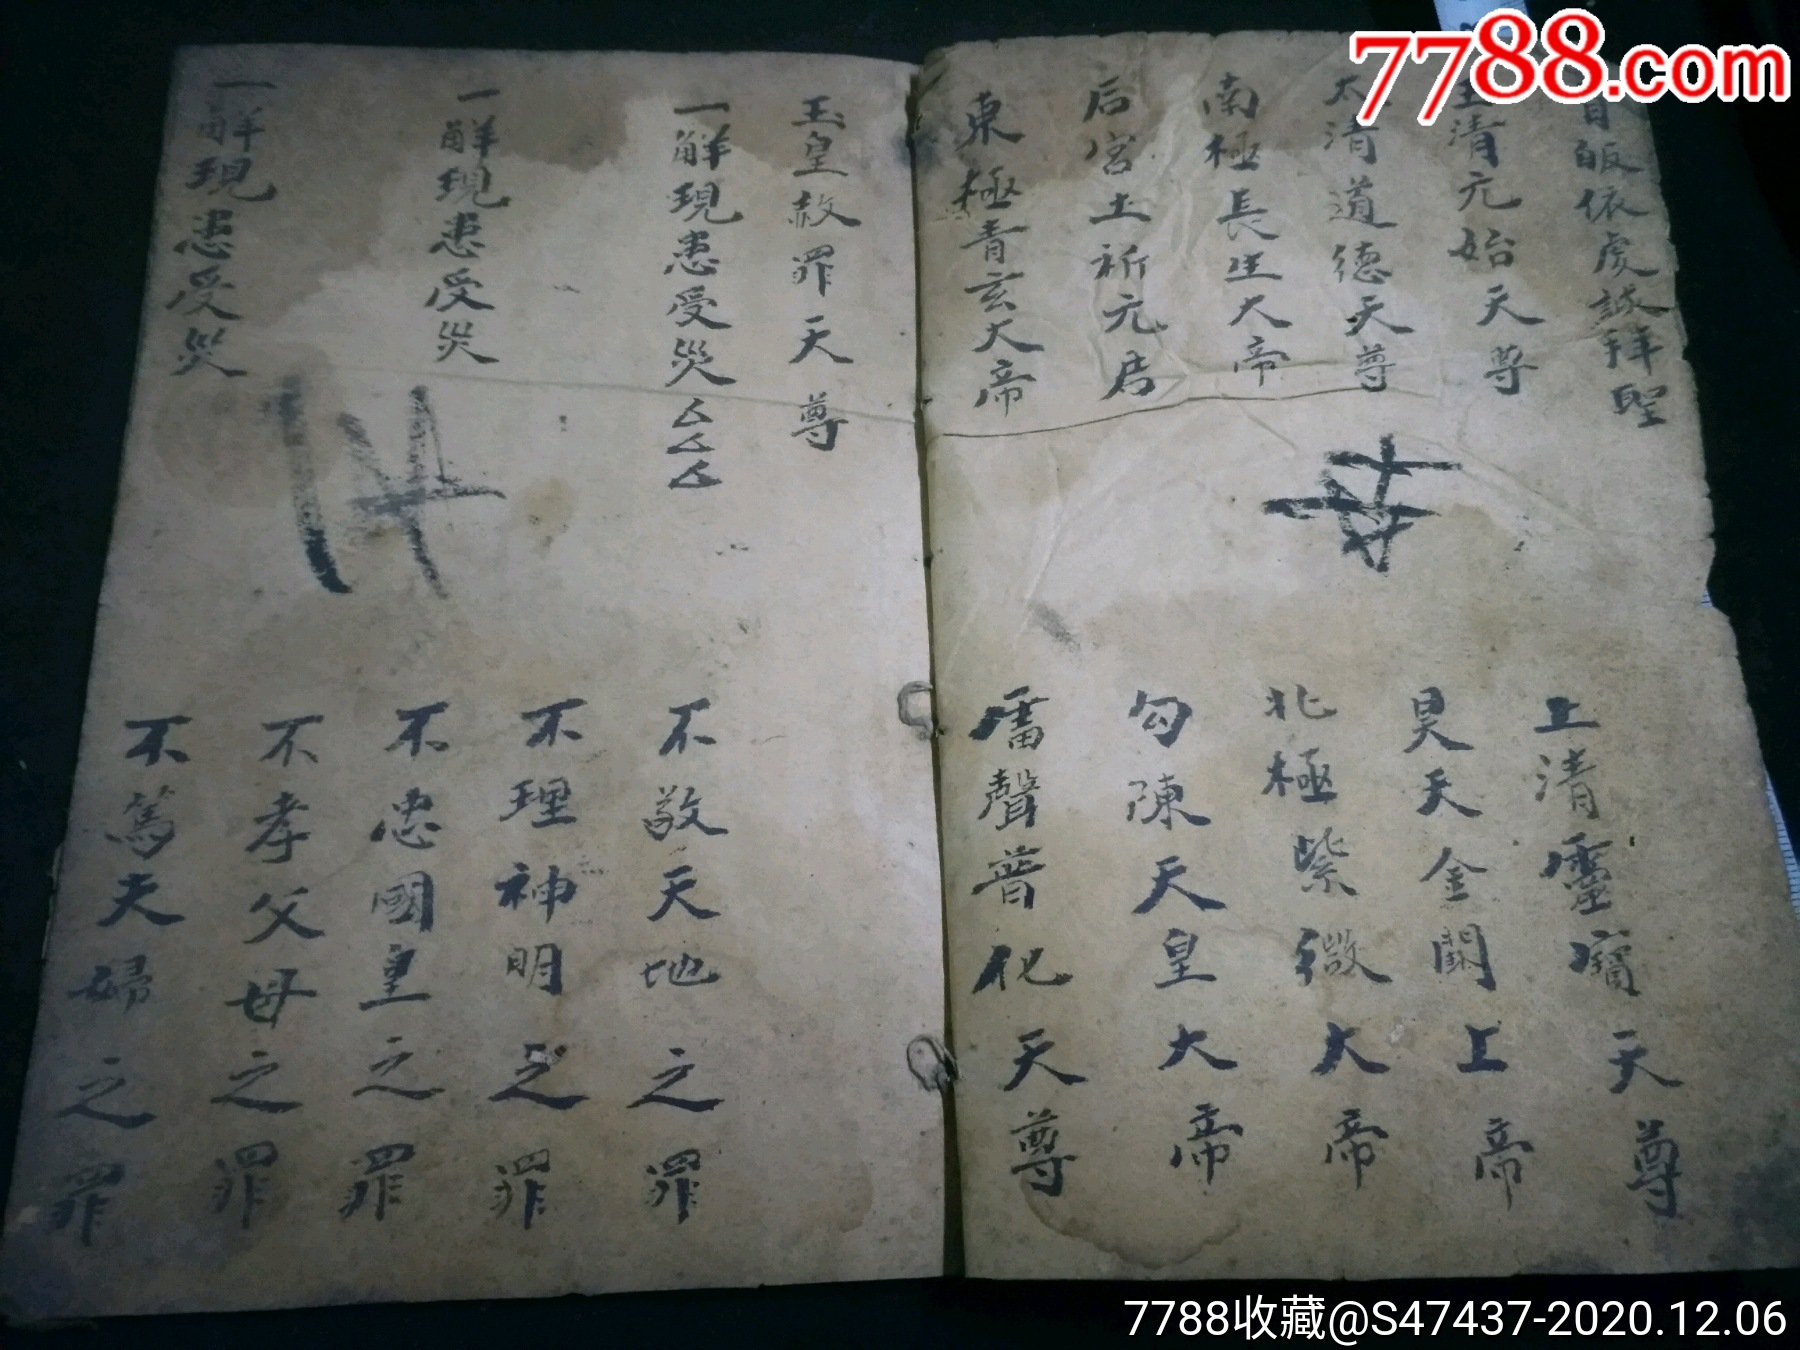 7788.com
首皈依虔誠拜聖
玉清元始天尊
上清靈寶天尊
太清道德天尊
昊天金闕上帝
南極長生大帝
北極紫微大帝
后宮土祈元君
勾陳天皇大帝
東極青玄大帝
雷聲普化天尊
玉皇赦罪天尊
一解現患受災厶厶厶
不敬天地之罪
一解現患受災
不理神明之罪
不忠國皇之罪
不孝父母之罪
一解現患受災
不篤夫婦之罪
7788收藏@S47437-2020.12.06